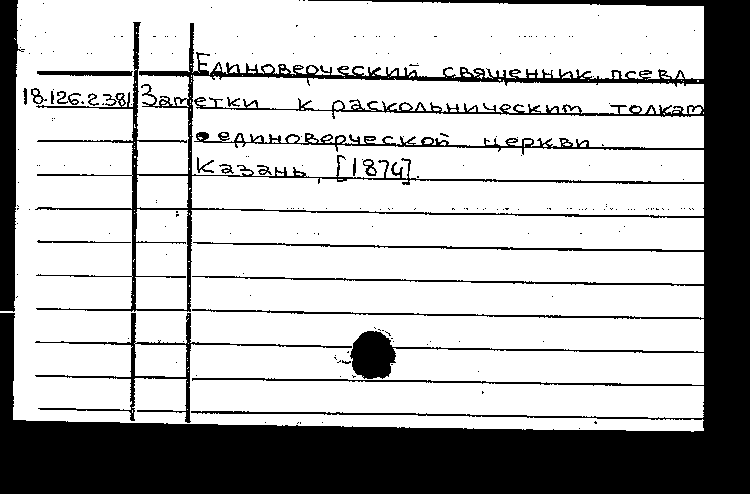 Единоверческий священник, псевд.
18.126.2.381 Заметки к раскольническим толкам
о единоверческой церкви.
Казань, [1874].